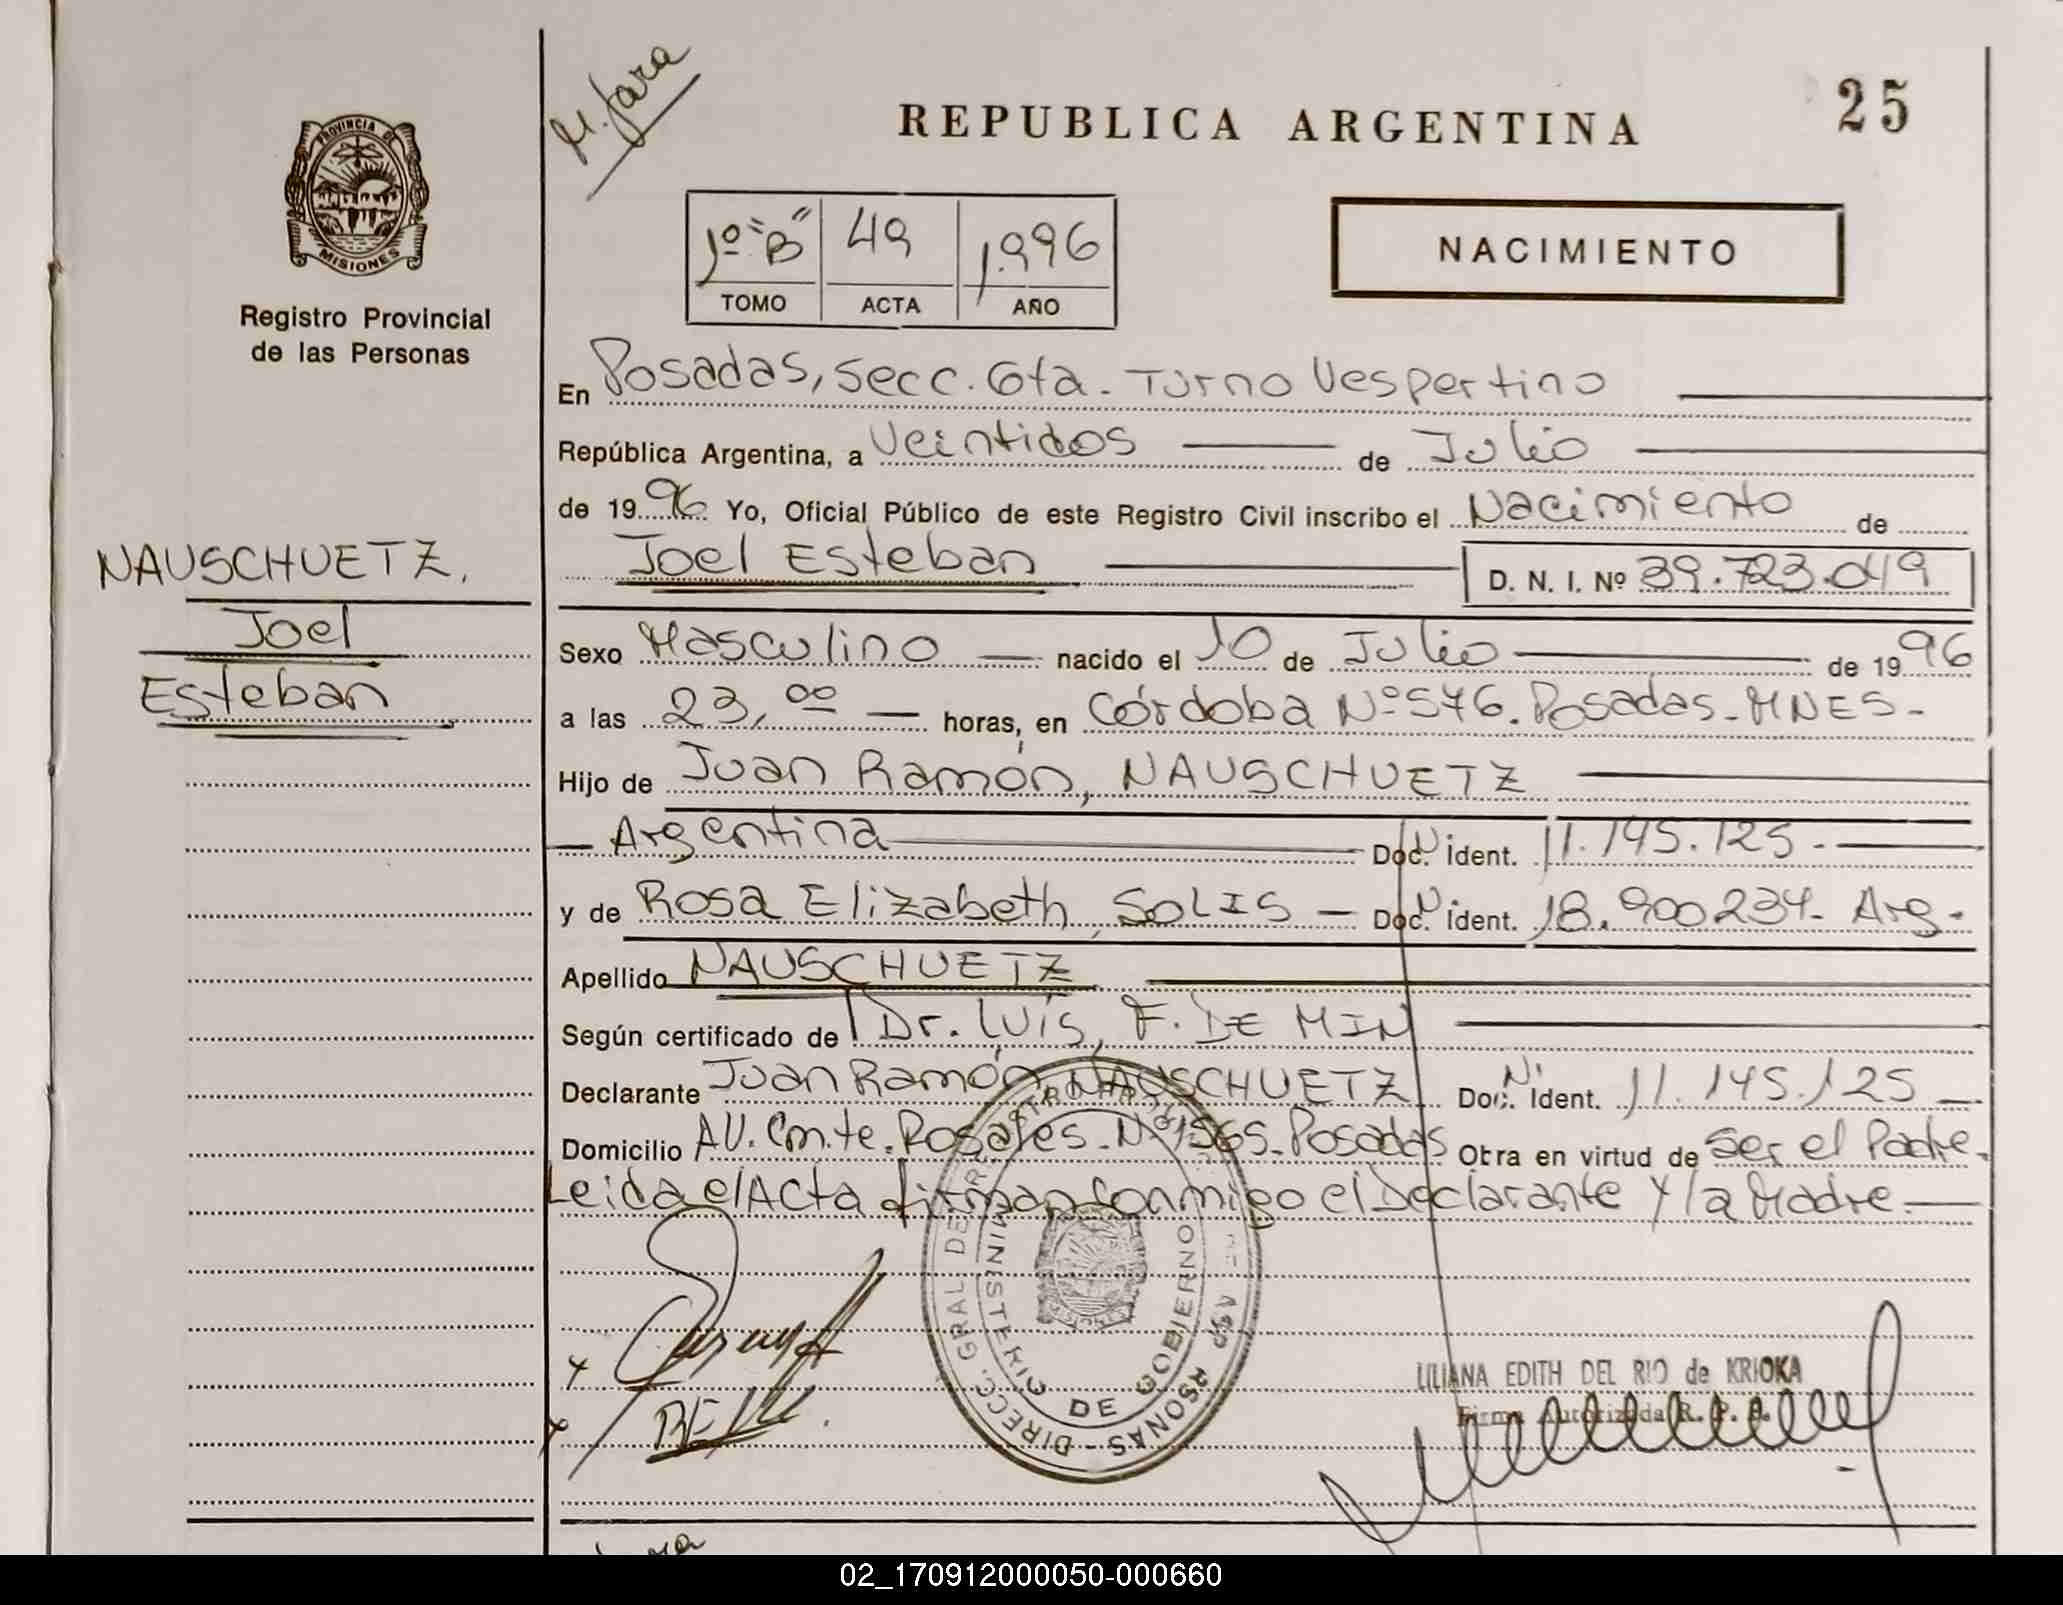 M. Jara
REPUBLICA ARGENTINA
25
PROVINCIA DE
MISIONES
Registro Provincial
de las Personas
1º "B"
49
1.996
TOMO
ACTA
AÑO
NACIMIENTO
En Posadas, Secc. 6ta. Turno Vespertino
República Argentina, a Veintidos de Julio
de 1996 Yo, Oficial Público de este Registro Civil inscribo el Nacimiento de
NAUSCHUETZ,
Joel
Esteban
Joel Esteban D. N. I. Nº 39.723.049
Sexo Masculino nacido el 10 de Julio de 1996
a las 23,00 horas, en Córdoba Nº 576. Posadas - MNES -
Hijo de Juan Ramón, NAUSCHUETZ
Argentina Doc. ident. 11.145.125.
y de Rosa Elizabeth, SOLIS Doc. ident. 18.900234. Arg.
Apellido NAUSCHUETZ
Según certificado de Dr. Luis, F. DE MIN
Declarante Juan Ramón, NAUSCHUETZ Doc. Ident. 11.145.125
Domicilio AV. Cm.te. Rosales. Nº 1565. Posadas Otra en virtud de ser el Padre.
Leida el Acta firman conmigo el Declarante y la Madre.
DIRECC. GRAL DE
MINISTERIO DE GOBIERNO
LILIANA EDITH DEL RIO de KRIOKA
Firma Autorizada R. P. P.
02_170912000050-000660